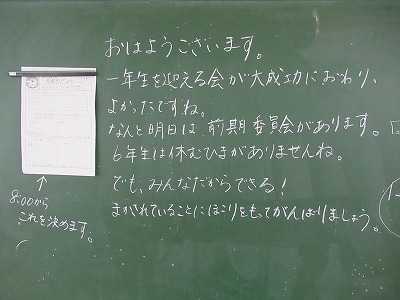 おはようございます。
一年生を迎える会が大成功におわり、
よかったですね。
なんと明日は前期委員会があります。
6年生は休むひまがありませんね。
でも、みんなだからできる!
まかされていることにほこりをもってがんばりましょう。
8:00から
これを決めます。